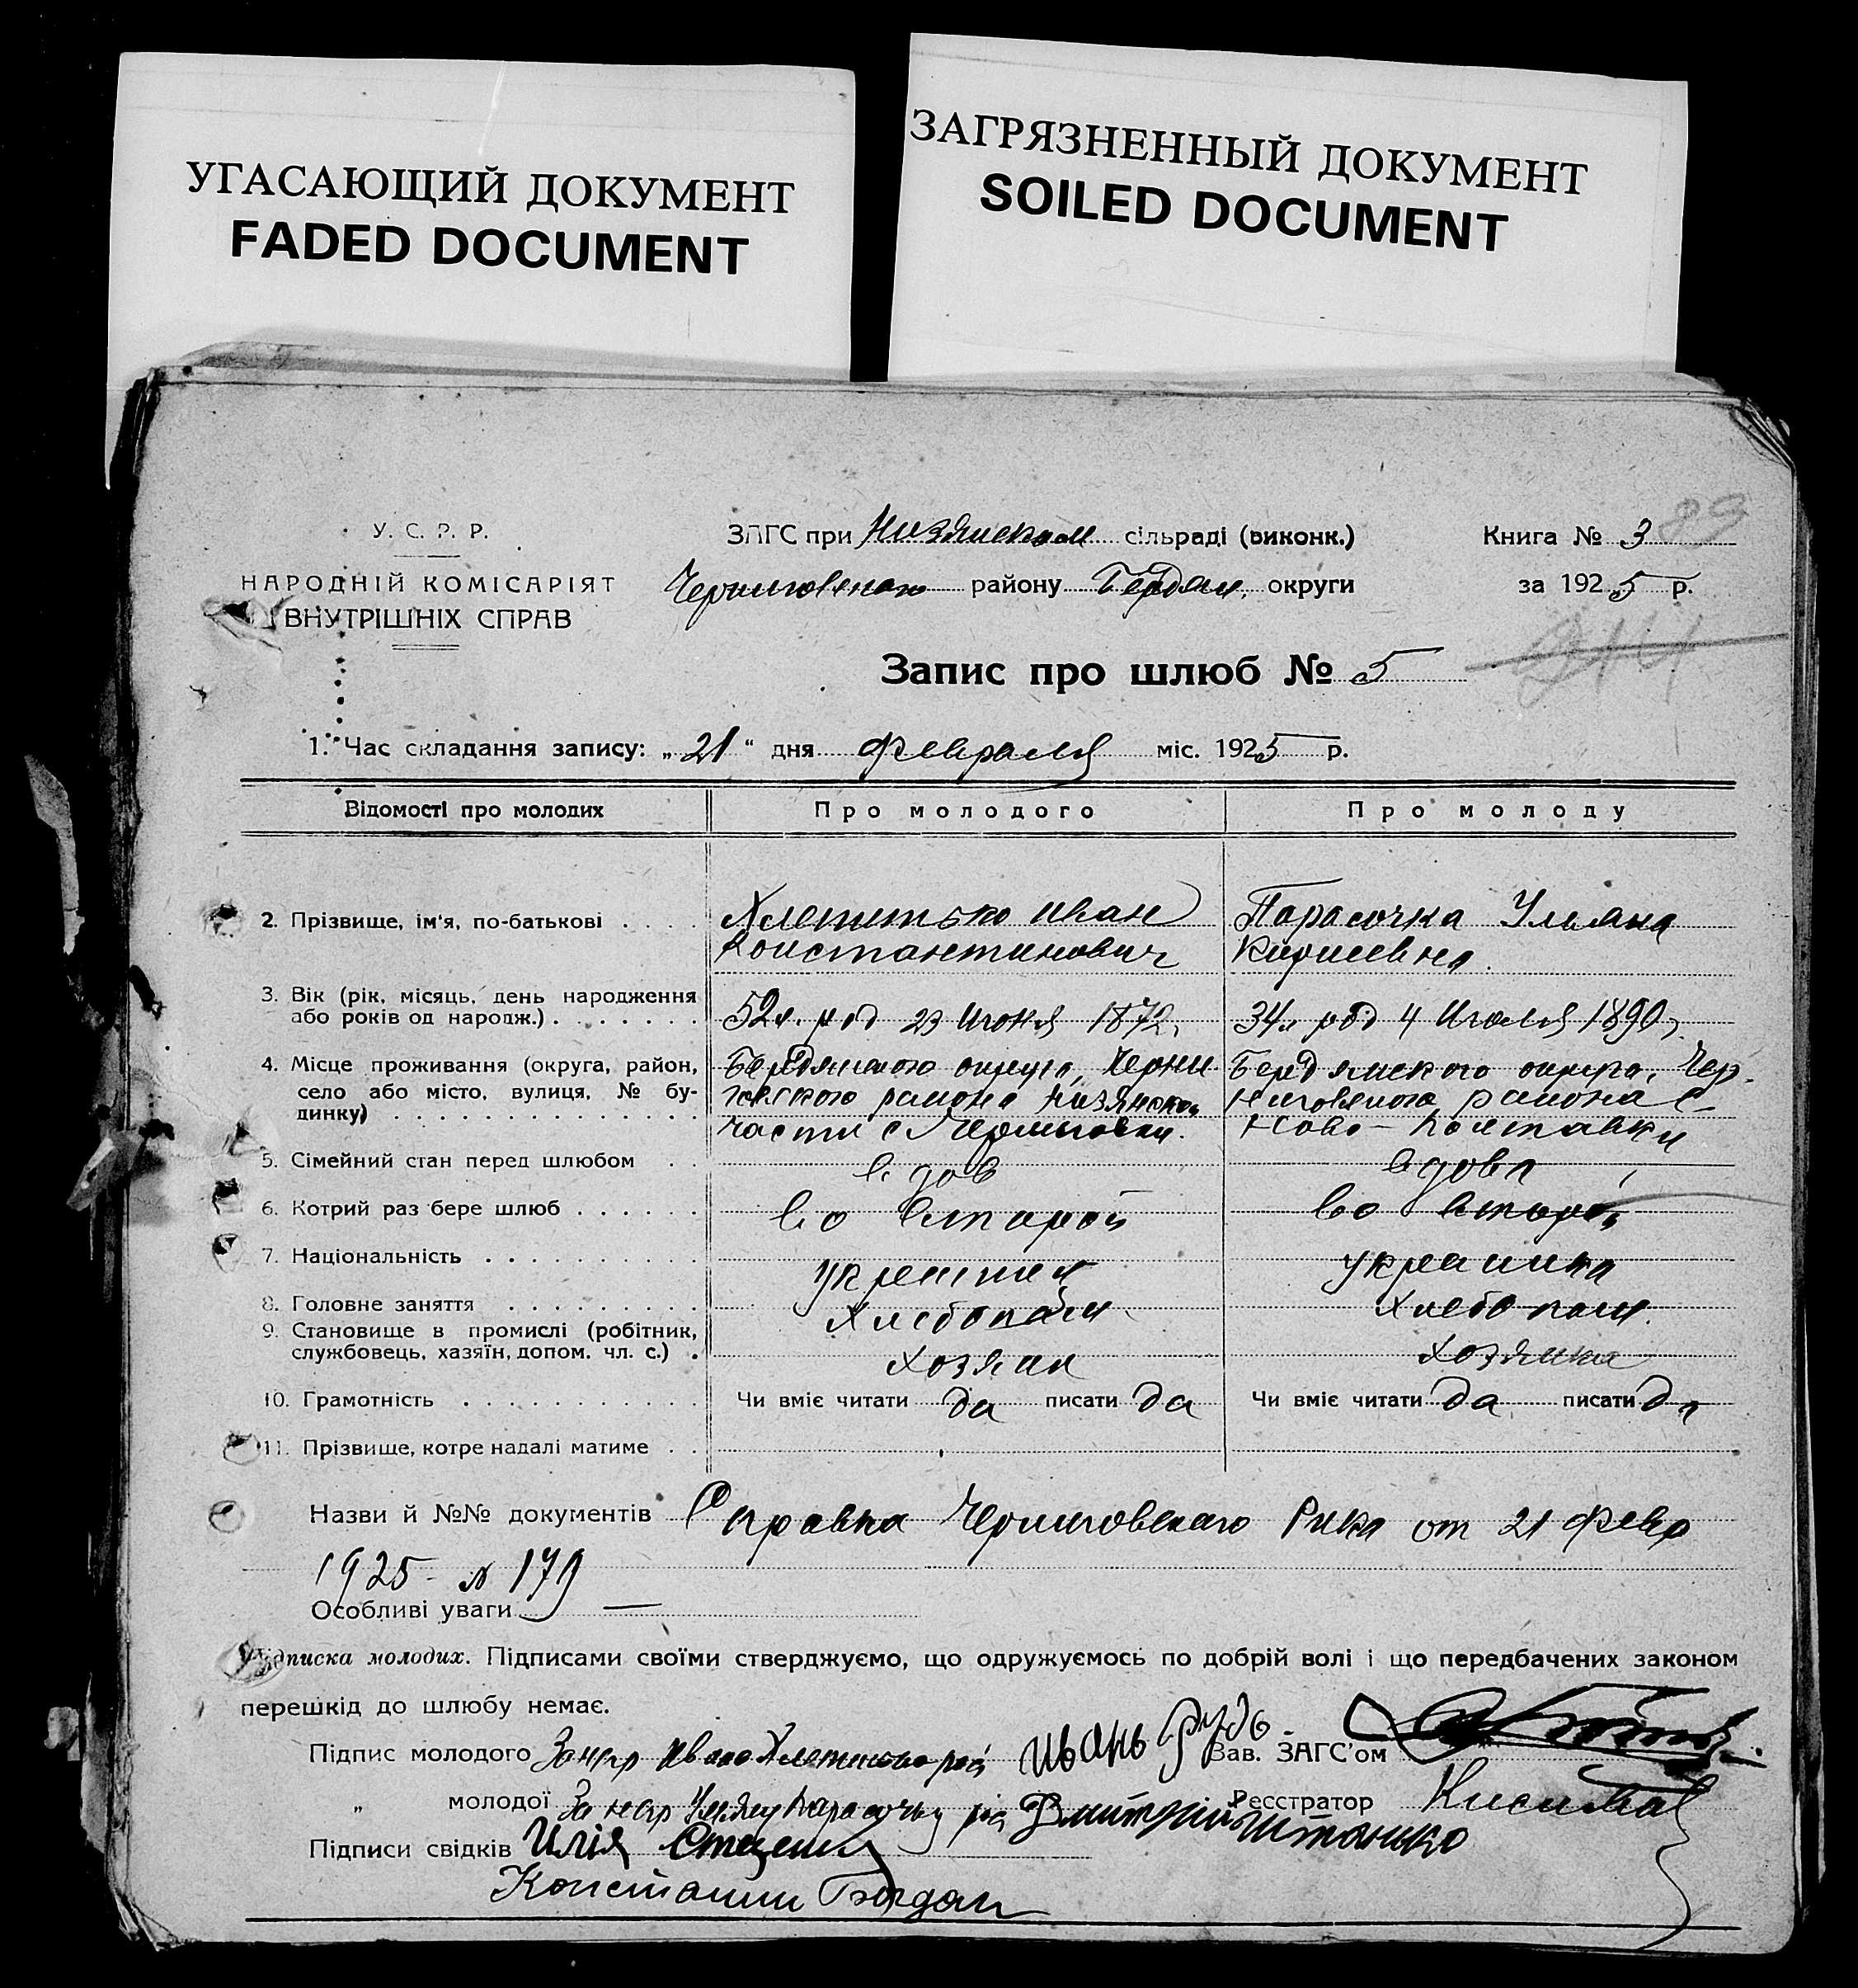 УГАСАЮЩИЙ ДОКУМЕНТ
FADED DOCUMENT
ЗАГРЯЗНЕННЫЙ ДОКУМЕНТ
SOILED DOCUMENT
У. С. Р. Р.
НАРОДНІЙ КОМІСАРІЯТ
ВНУТРІШНІХ СПРАВ
ЗАГС при Низянском сільраді (виконк.)
Черниговского району Бердян. округи
Книга № 3 89
за 1925 р.
Запис про шлюб № 5
1. Час складання запису: „21“ дня Февраля міс. 1925 р.
Відомості про молодих
Про молодого
Про молоду
2. Прізвище, ім'я, по-батькові . . . .
Иван
Константинович
Парасочка Ульяна
Кириевна
3. Вік (рік, місяць, день народження
або років од народж.) . . . . . . .
52л. род 23 Июня 1872,
34л род 4 Июля 1890.
4. Місце проживання (округа, район,
село або місто, вулиця, № бу-
динку) . . . . . . . . . . . . . .
Бердянского округа, Черни
говского района Низянской
части с Черниговки.
Бердянского округа, Чер.
ниговского района с
Ново-Полтавки
5. Сімейний стан перед шлюбом . .
вдов
вдова
6. Котрий раз бере шлюб . . . . . .
во второй
во второй
7. Національність . . . . . . . . . .
украинец
украинка
8. Головне заняття . . . . . . . . .
Хлебопаш.
Хлебопаш.
9. Становище в промислі (робітник,
службовець, хазяїн, допом. чл. с.) .
хозяин
хозяйка
10. Грамотність . . . . . . . . . . .
Чи вміє читати да писати да
Чи вміє читати да писати да
11. Прізвище, котре надалі матиме . .
Назви й №№ документів Справка Черниговскаго Рика от 21 Февр
1925 - № 179
Особливі уваги —
Підписка молодих. Підписами своїми стверджуємо, що одружуємось по добрій волі і що передбачених законом
перешкід до шлюбу немає.
Підпис молодого За негр Ивана Иванъ Рудь
Зав. ЗАГС'ом
„ молодої За негр Ульяну Парасочку Дмитрий Штанько
Реєстратор
Підписи свідків Илія Стаценко
Константин Богдан